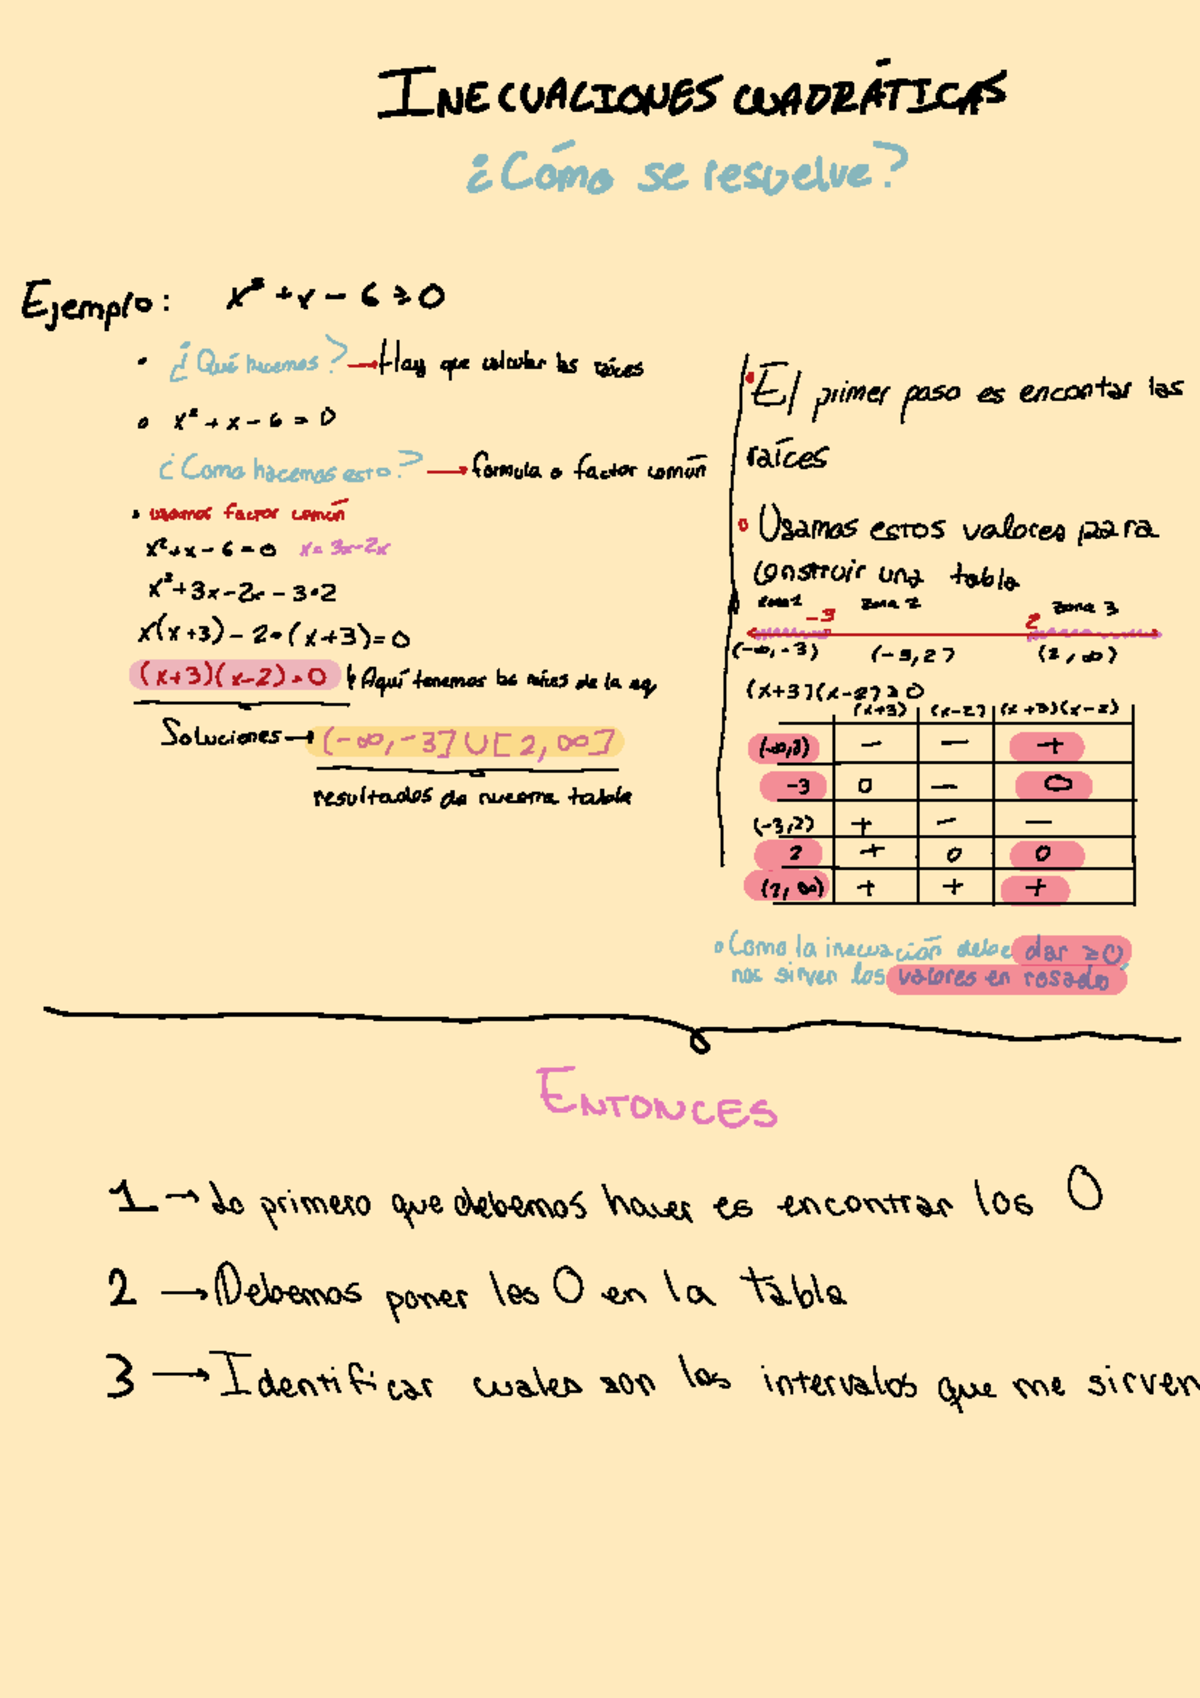 INECUACIONES CUADRÁTICAS
¿Cómo se resuelve?
Ejemplo: x² + x - 6 ≥ 0
• ¿Qué hacemos? → Hay que calcular las raíces
• x² + x - 6 = 0
¿Como hacemos esto? → formula o factor común
• usamos factor común
x² + x - 6 = 0 x = 3x - 2x
x² + 3x - 2x - 3•2
x(x+3) - 2•(x+3) = 0
(x+3)(x-2) = 0 Aquí tenemos las raíces de la eq.
Soluciones → (-∞,-3] ∪ [2,∞]
resultados de nuestra tabla
• El primer paso es encontar las
raíces
• Usamos estos valores para
construir una tabla
zona 1 -3 zona 2 2 zona 3
(-∞,-3) (-3,2) (2,∞)
(x+3)(x-2) ≥ 0
(x+3) (x-2) (x+3)(x-2)
(-∞,3) - - +
-3 0 - 0
(-3,2) + - -
2 + 0 0
(2,∞) + + +
• Como la inecuación debe dar ≥0
nos sirven los valores en rosado
ENTONCES
1 → Lo primero que debemos hacer es encontrar los 0
2 → Debemos poner los 0 en la tabla
3 → Identificar cuales son los intervalos que me sirven